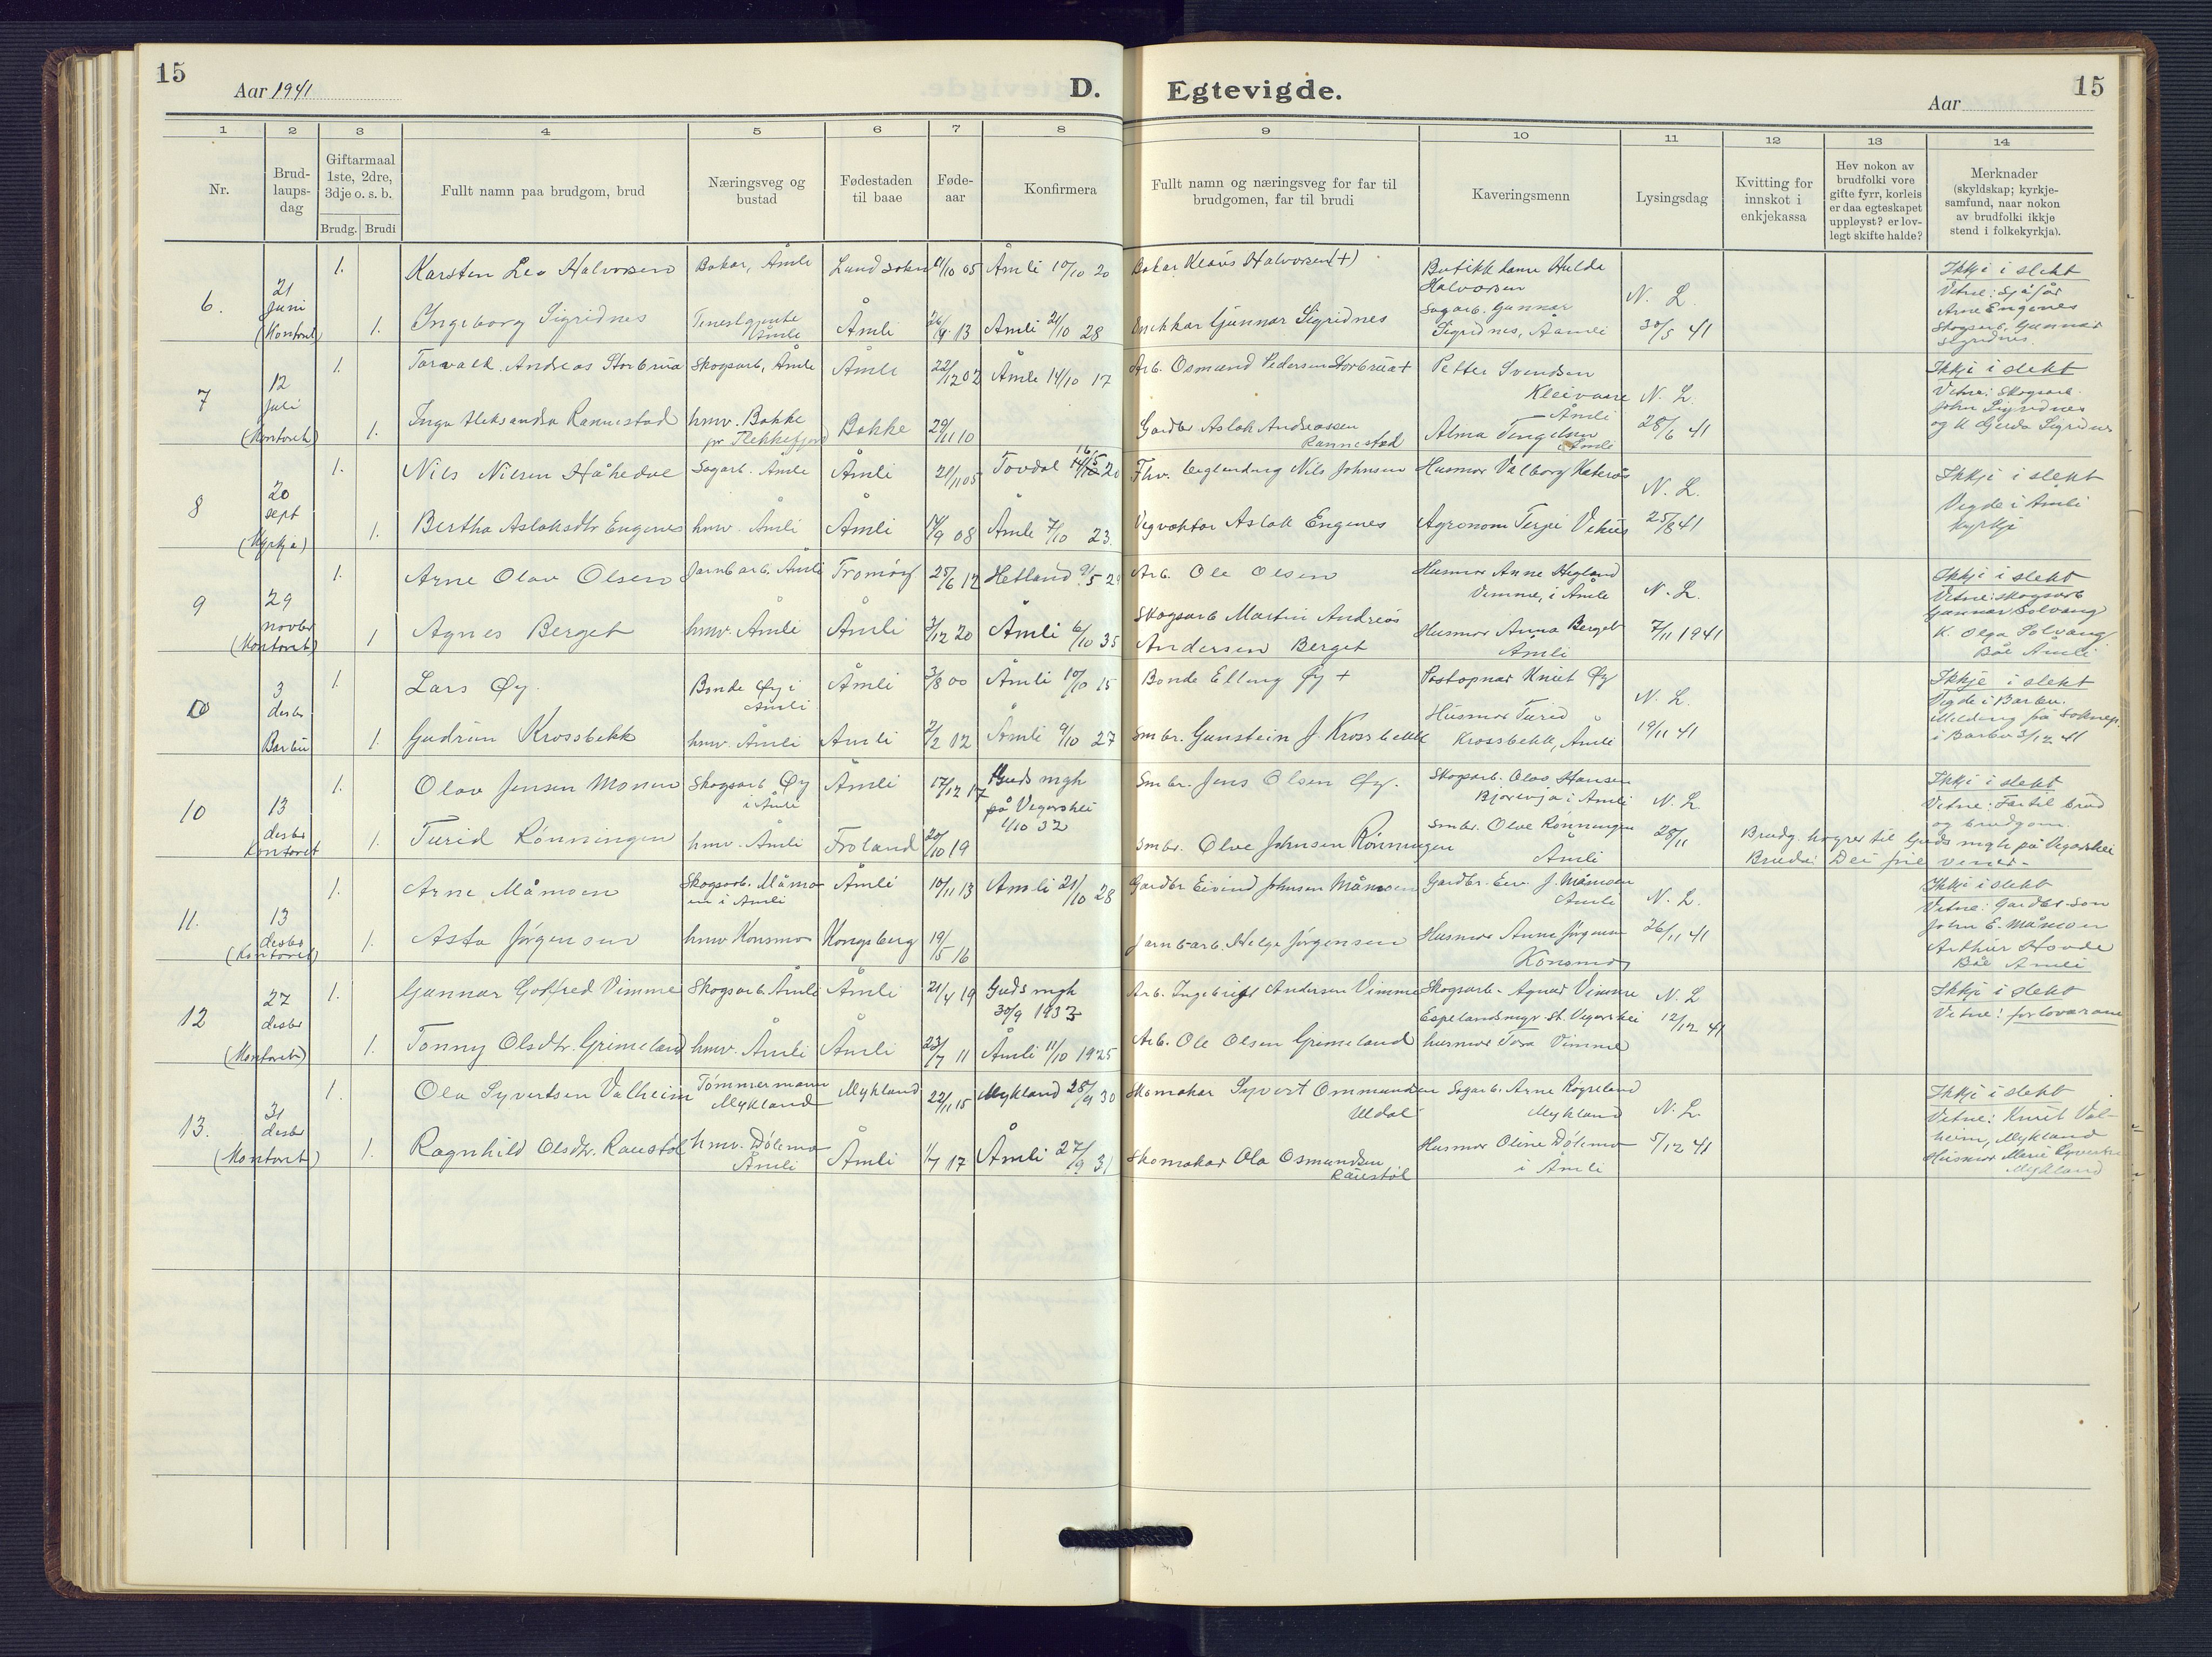 15
Aar 1941
D.
Egtevigde.
Aar
15
1 2 3 4 5 6 7 8 9 10 11 12 13 14
Nr.
Brud-
laups-
dag
Giftarmaal
1ste, 2dre,
3dje o. s. b.
Brudg. Brudi
Fullt namn paa brudgom, brud
Næringsveg og
bustad
Fødestaden
til baae
Føde-
aar
Konfirmera
Fullt namn og næringsveg for far til
brudgomen, far til brudi
Kaveringsmenn
Lysingsdag
Kvitting for
innskot i
enkjekassa
Hev nokon av
brudfolki vore
gifte fyrr, korleis
er daa egteskapet
uppløyst? er lov-
legt skifte halde?
Merknader
(skyldskap; kyrkje-
samfund, naar nokon
av brudfolki ikkje
stend i folkekyrkja).
6.
21
Juni
(Kontoret)
1. Karsten Leo Halvorsen Bakar, Åmli Lund sokn 4/10 05 Åmli 10/10 20 Bakar Klaus Halvorsen (+)
Butikkdame Hulda
Halvorsen
1. Ingeborg Sigridnes Tenestgjente
Åmli
Åmli 26/4 13 Åmli 21/10 28 Gunnar Sigridnes
Sagarb. Gunnar
Sigridnes, Aamli
N. L.
30/5 41
Ikkje i slekt
Vitne: Sjåfør
Arne Engenes
Skogsarb. Gunnar
Sigridnes.
7
12
Juli
(Kontoret)
1. Torvald Andreas Storbrua Skogsarb, Åmli Åmli 22/12 02 Åmli 14/10 17 Arb. Osmund Pedersen Storbrua +
Petter Svendsen
Kleivane
Åmli
1. Inga Aleksandra Rannestad hmv. Bakke
pr Flekkefjord
Bakke 29/11 10
Gardbr Aslak Andreassen
Rannestad
Alma Tengelsen
Åmli
N. L.
28/6 41
Ikkje i slekt
Vitne: Skogsarb.
John Sigridnes
og K Gerda Sigridnes
8
20
sept
(Kyrkja)
1. Nils Nilsen Håhedal Sagarb. Åmli Åmli 21/11 05 Tovdal 16/5 20 Fhv. Nils Johnsen Husmor Valborg
1. Bertha Aslaksdtr Engenes hmv. Åmli Åmli 14/9 08 Åmli 7/10 23. Vegvaktar Aslak Engenes Agronom Terje Vehus
N. L.
25/8 41
Ikkje i slekt
Vigde i Åmli
kyrkje
9
29
novbr
(Kontoret)
1. Arne Olav Olsen Jarnb arb. Åmli Tromøy 25/6 12 Hetland 9/5 2 Arb. Ole Olsen
Husmor Anne Hegland
Vimme, i Åmli
1 Agnes Berget hmv. Åmli Åmli 3/12 20 Åmli 6/10 35
Skogsarb Martin Andreas
Andersen Berget
Husmor Anna Berget
Åmli
N. L.
7/11 1941
Ikkje i slekt
Vitne: skogsarb
Gunnar Solvang
K. Olga Solvang
Båe Åmli
10
3
desbr
Barbu
1. Lars Øy. Bonde Øy i
Åmli
Åmli 3/8 00 Åmli 10/10 15 Bonde Elling Øy + Postopnar Knut Øy
1. Gudrun Krossbekk hmv. Åmli Åmli 2/2 12 Åmli 9/10 27 Smbr. Gunstein J. Krossbekk
Husmor Turid
Krossbekk, Åmli
N. L.
19/11 41
Ikkje i slekt
Vigde i Barbu.
Melding frå Soknep.
i Barbu 3/12 41
10
13
desbr
Kontoret
1. Olav Jensen Monen Skogsarb Øy
i Åmli
Åmli 17/12 17
Guds mgh
på Vegårshei
1/10 32
Smbr. Jens Olsen Øy.
Skogsarb. Olav Hansen
i Åmli
1. Turid Rønningen hmv. Åmli Froland 20/10 19
Smbr. Olve Johnsen Rønningen
Smbr. Olve Rønningen
Åmli
N. L.
28/11
Brudg. høyrer til Guds mgh på Vegårshei
Brudi: Dei frie vener.
Ikkje i slekt
Vitne: Far til brud
og brudgom.
11.
13
desbr
(Kontoret)
1. Arne Måmoen Skogsarb. Måmo-
en i Åmli
Åmli 10/11 13 Åmli 21/10 28 Gardbr Eivind Johnsen Måmoen
Gardbr. Eiv. J. Måmoen
Åmli
1. Asta Jørgensen hmv Konsmo Kongsberg 19/5 16 Jarnb arb. Helge Jørgensen
Husmor Anna Jørgensen
Konsmo
N. L.
26/11 41
Ikkje i slekt
Vitne: Gardbr. son
John E. Måmoen
Arthur Hovde
Båe Åmli
12
27
desbr
(Kontoret)
1. Gunnar Gotfred Vimme Skogsarb. Åmli Åmli 21/4 19
Guds mgh
30/9 1933
Arb. Ingebrigt Andersen Vimme
Skogsarb. Agnar Vimme
Espelandsmyr st. Vegårshei
1. Tonny Olsdtr. Grimeland hmv. Åmli Åmli 23/7 11 Åmli 11/10 1925 Arb. Ole Olsen Grimeland husmor Tora Vimme
N. L.
12/12 41
Ikkje i slekt
Vitne: forlovarane
13.
31
desbr
(Kontoret)
1. Ola Syvertsen Valheim Tømmermann
Mykland
Mykland 22/11 15 Mykland 28/9 30
Skomakar Syvert Ommundsen
Uldal
Sagarb. Arne Rogseland
Mykland
1. Ragnhild Olsdtr. Raustøl hmv. Dølemo
Åmli
Åmli 1/7 17 Åmli 27/9 31
Skomakar Ola Osmundsen
Raustøl
Husmor Oline Dølemo
i Åmli
N. L.
5/12 41
Ikkje i slekt
Vitne: Knut Val-
heim, Mykland
Husmor Marie Syvertsen
Mykland